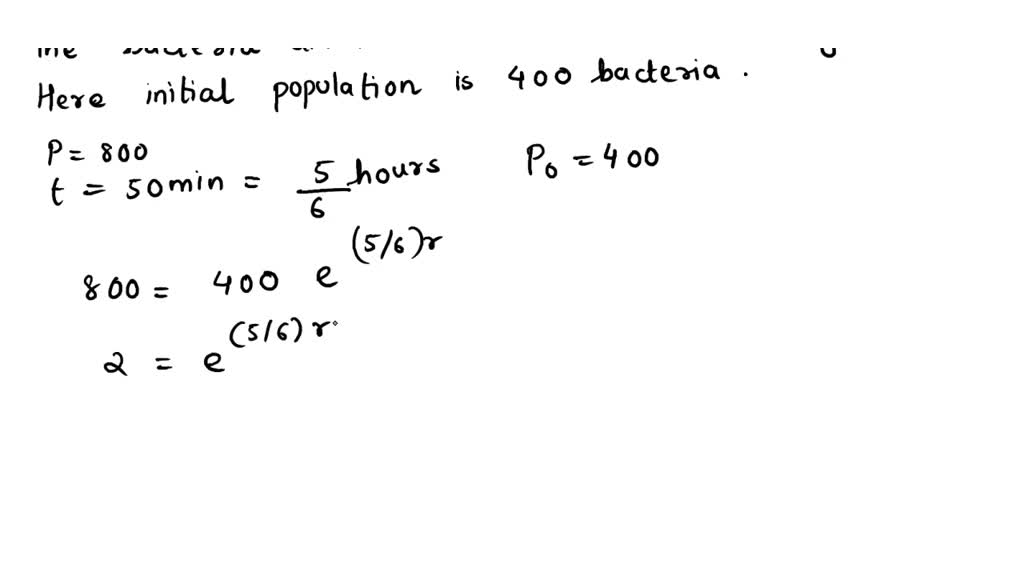 Here initial population is 400 bacteria.
P = 800
t = 50min = 5/6 hours
P₀ = 400
800 = 400 e^(5/6)r
2 = e^(5/6)r